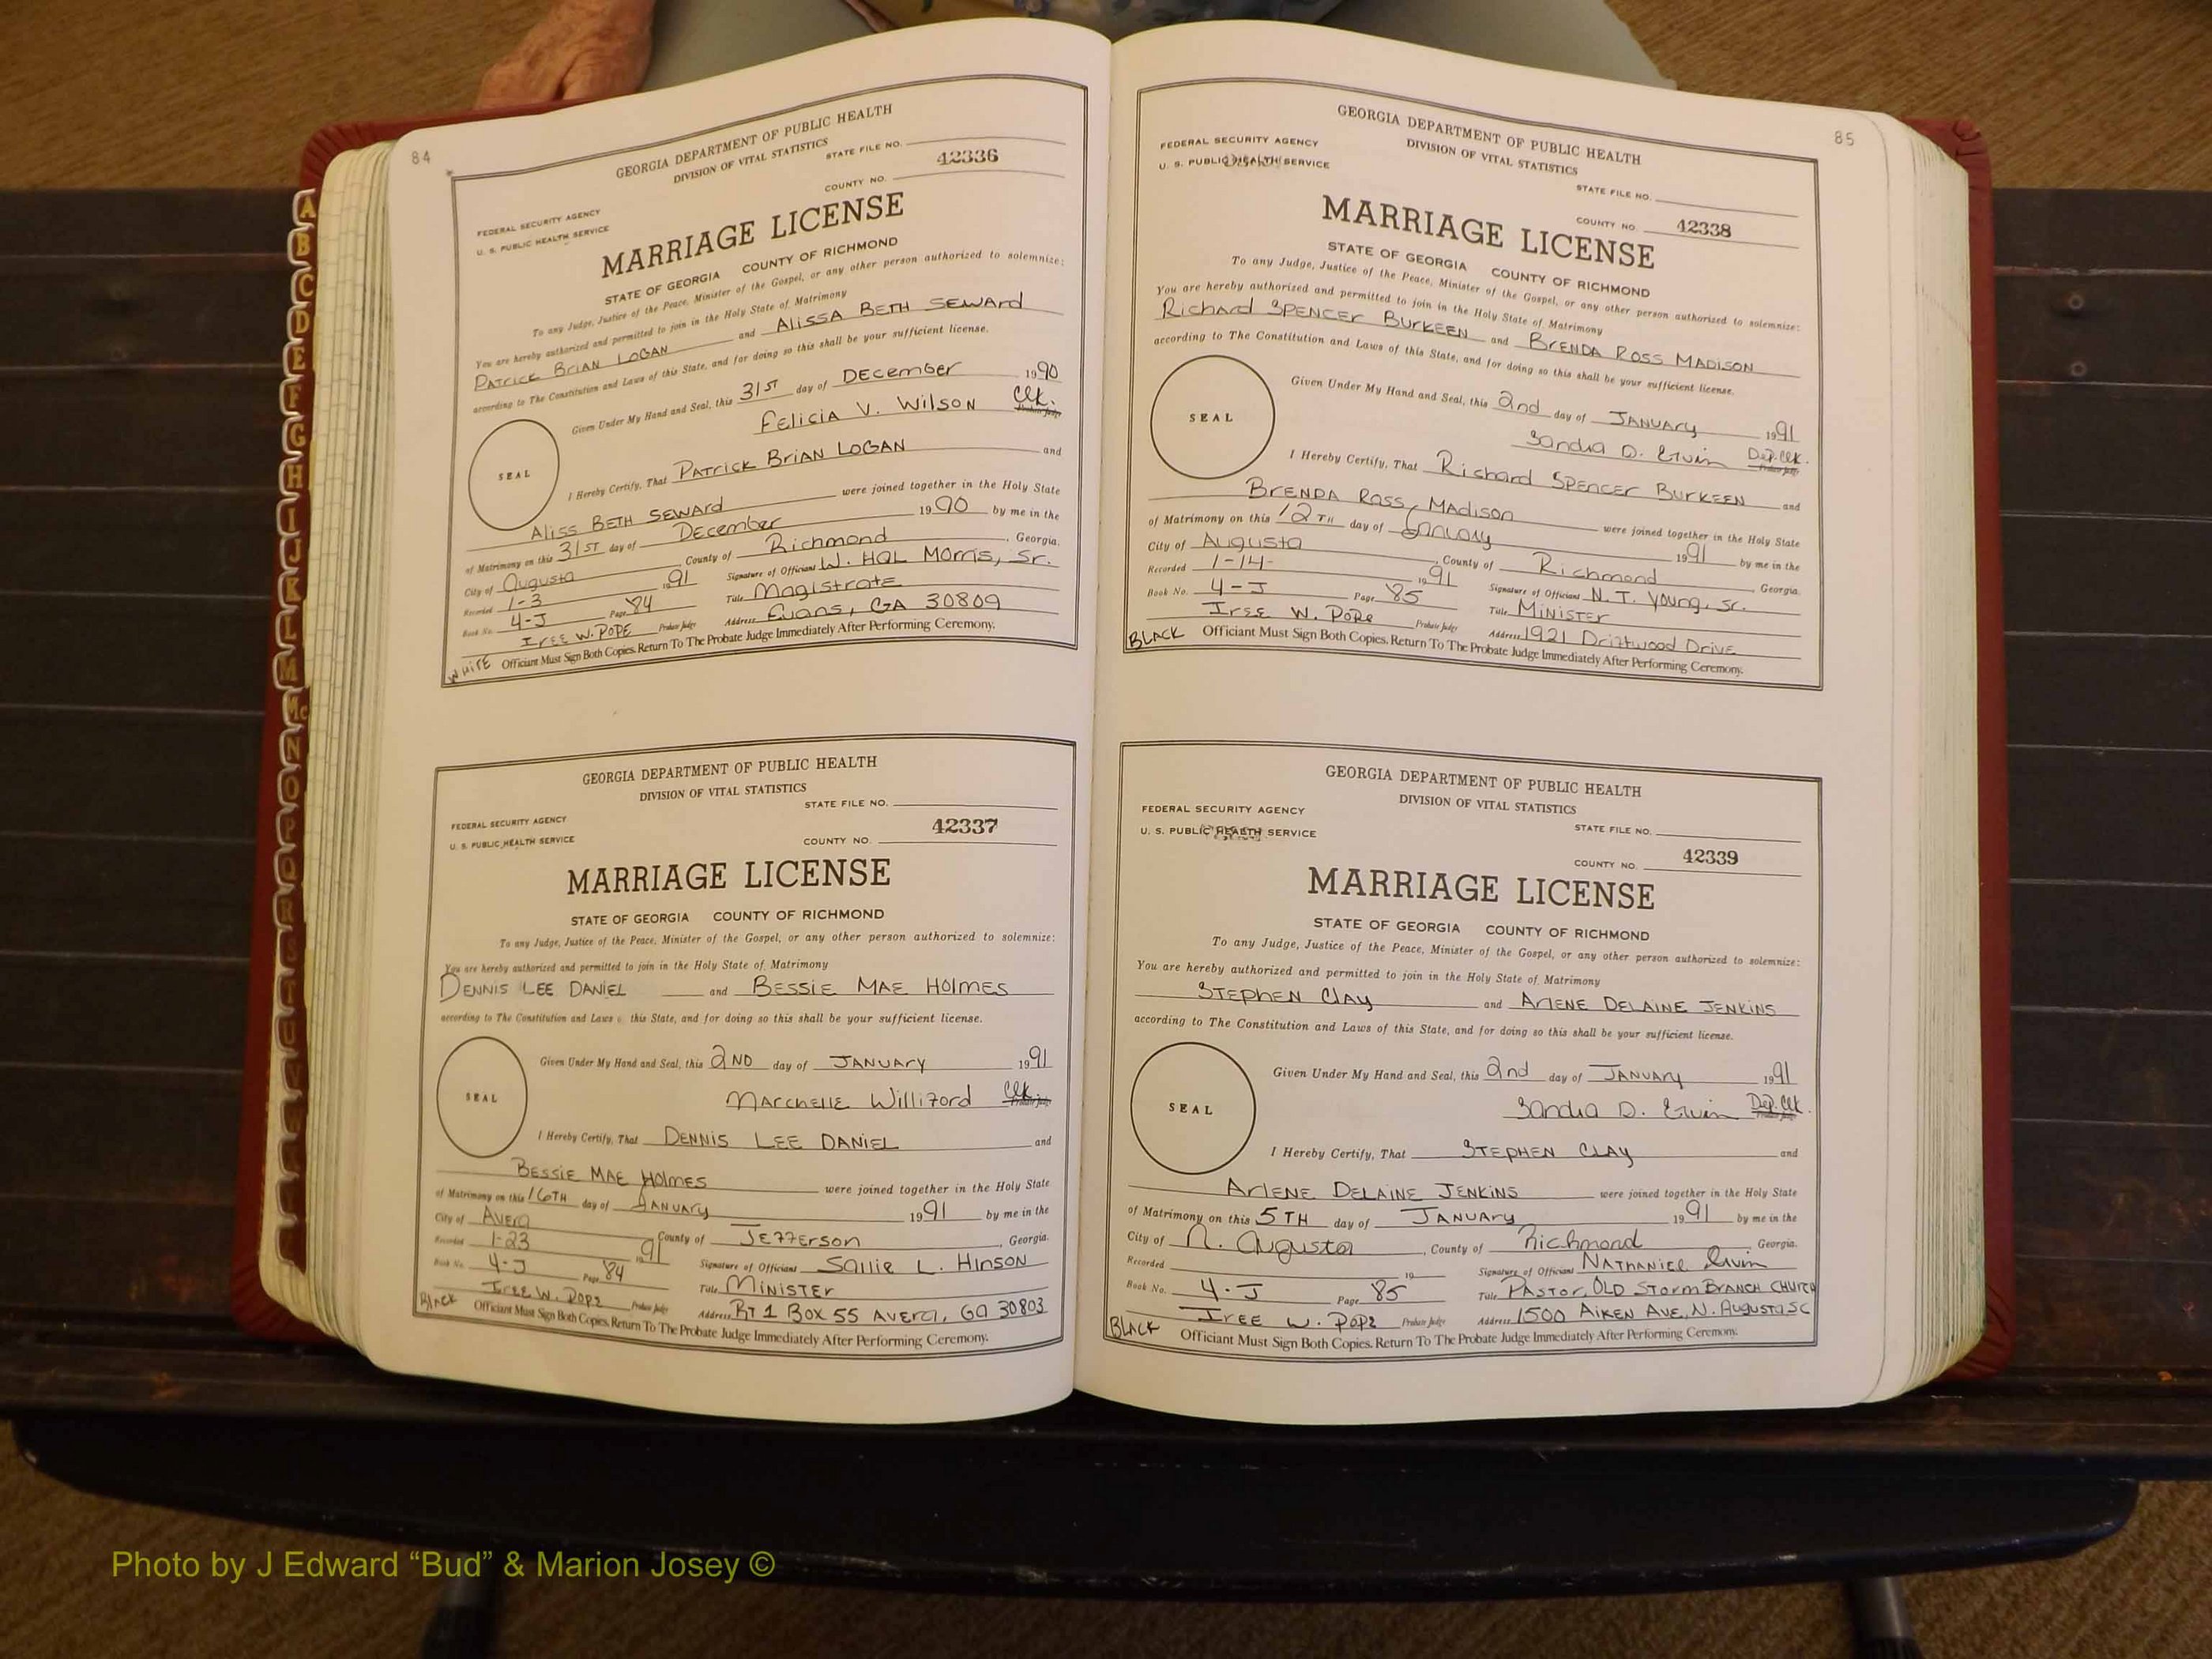 84
GEORGIA DEPARTMENT OF PUBLIC HEALTH
DIVISION OF VITAL STATISTICS
STATE FILE NO.
42336
COUNTY NO.
FEDERAL SECURITY AGENCY
U. S. PUBLIC HEALTH SERVICE
MARRIAGE LICENSE
STATE OF GEORGIA COUNTY OF RICHMOND
To any Judge, Justice of the Peace, Minister of the Gospel, or any other person authorized to solemnize:
You are hereby authorized and permitted to join in the Holy State of Matrimony
PATRICK BRIAN LOGAN and ALISSA BETH SEWARD
according to The Constitution and Laws of this State, and for doing so this shall be your sufficient license.
Given Under My Hand and Seal, this 31ST day of DECEMBER 1990
SEAL
Felicia V. Wilson Clk. Probate Judge
I Hereby Certify, That PATRICK BRIAN LOGAN and
ALISS BETH SEWARD were joined together in the Holy State
of Matrimony on this 31ST day of December 1990 by me in the
City of Augusta County of Richmond, Georgia.
Recorded 1-3 1991 Signature of Officiant W. HAL Morris, Sr.
Book No. 4-J Page 84 Title Magistrate
IREE W. POPE Probate Judge Address Evans, GA 30809
WHITE Officiant Must Sign Both Copies. Return To The Probate Judge Immediately After Performing Ceremony.
GEORGIA DEPARTMENT OF PUBLIC HEALTH
DIVISION OF VITAL STATISTICS
STATE FILE NO.
FEDERAL SECURITY AGENCY
U. S. PUBLIC HEALTH SERVICE
42337
COUNTY NO.
MARRIAGE LICENSE
STATE OF GEORGIA COUNTY OF RICHMOND
To any Judge, Justice of the Peace, Minister of the Gospel, or any other person authorized to solemnize:
You are hereby authorized and permitted to join in the Holy State of Matrimony
DENNIS LEE DANIEL and BESSIE MAE HOLMES
according to The Constitution and Laws of this State, and for doing so this shall be your sufficient license.
Given Under My Hand and Seal, this 2ND day of JANUARY 1991
SEAL
Marchelle Williford Clk. Probate Judge
I Hereby Certify, That DENNIS LEE DANIEL and
BESSIE MAE HOLMES were joined together in the Holy State
of Matrimony on this 16TH day of JANUARY 1991 by me in the
City of Avera County of JEFFERSON, Georgia.
Recorded 1-23 1991 Signature of Officiant Sallie L. HINSON
Book No. 4-J Page 84 Title MINISTER
IREE W. POPE Probate Judge Address RT 1 BOX 55 AVERA, GA 30803
BLACK Officiant Must Sign Both Copies. Return To The Probate Judge Immediately After Performing Ceremony.
85
GEORGIA DEPARTMENT OF PUBLIC HEALTH
DIVISION OF VITAL STATISTICS
FEDERAL SECURITY AGENCY
U. S. PUBLIC HEALTH SERVICE
STATE FILE NO.
COUNTY NO. 42338
MARRIAGE LICENSE
STATE OF GEORGIA COUNTY OF RICHMOND
To any Judge, Justice of the Peace, Minister of the Gospel, or any other person authorized to solemnize:
You are hereby authorized and permitted to join in the Holy State of Matrimony
Richard SPENCER BURKEEN and BRENDA ROSS MADISON
according to The Constitution and Laws of this State, and for doing so this shall be your sufficient license.
Given Under My Hand and Seal, this 2nd day of JANUARY 1991
SEAL
Sandra D. Ervin Dep. Clk. Probate Judge
I Hereby Certify, That Richard SPENCER BURKEEN and
BRENDA ROSS MADISON were joined together in the Holy State
of Matrimony on this 12TH day of January 1991 by me in the
City of Augusta, County of Richmond Georgia.
Recorded 1-14- 1991 Signature of Officiant N. T. Young, Sr.
Book No. 4-J Page 85 Title MINISTER
IREE W. POPE Probate Judge Address 1921 Driftwood Drive
BLACK Officiant Must Sign Both Copies. Return To The Probate Judge Immediately After Performing Ceremony.
GEORGIA DEPARTMENT OF PUBLIC HEALTH
DIVISION OF VITAL STATISTICS
FEDERAL SECURITY AGENCY
U. S. PUBLIC HEALTH SERVICE
STATE FILE NO.
COUNTY NO. 42339
MARRIAGE LICENSE
STATE OF GEORGIA COUNTY OF RICHMOND
To any Judge, Justice of the Peace, Minister of the Gospel, or any other person authorized to solemnize:
You are hereby authorized and permitted to join in the Holy State of Matrimony
STEPHEN CLAY and ARLENE DELAINE JENKINS
according to The Constitution and Laws of this State, and for doing so this shall be your sufficient license.
Given Under My Hand and Seal, this 2nd day of JANUARY 1991
SEAL
Sandra D. Ervin Dep. Clk. Probate Judge
I Hereby Certify, That STEPHEN CLAY and
ARLENE DELAINE JENKINS were joined together in the Holy State
of Matrimony on this 5TH day of JANUARY 1991 by me in the
City of N. Augusta, County of Richmond Georgia.
Recorded 19 Signature of Officiant NATHANIEL Irvin
Book No. 4-J Page 85 Title PASTOR, OLD STORM BRANCH CHURCH
IREE W. POPE Probate Judge Address 1500 AIKEN AVE, N. AUGUSTA SC
BLACK Officiant Must Sign Both Copies. Return To The Probate Judge Immediately After Performing Ceremony.
A
B
C
D
E
F
G
H
I
J
K
L
M
Mc
N
O
P
Q
R
S
T
U
V
Photo by J Edward “Bud” & Marion Josey ©